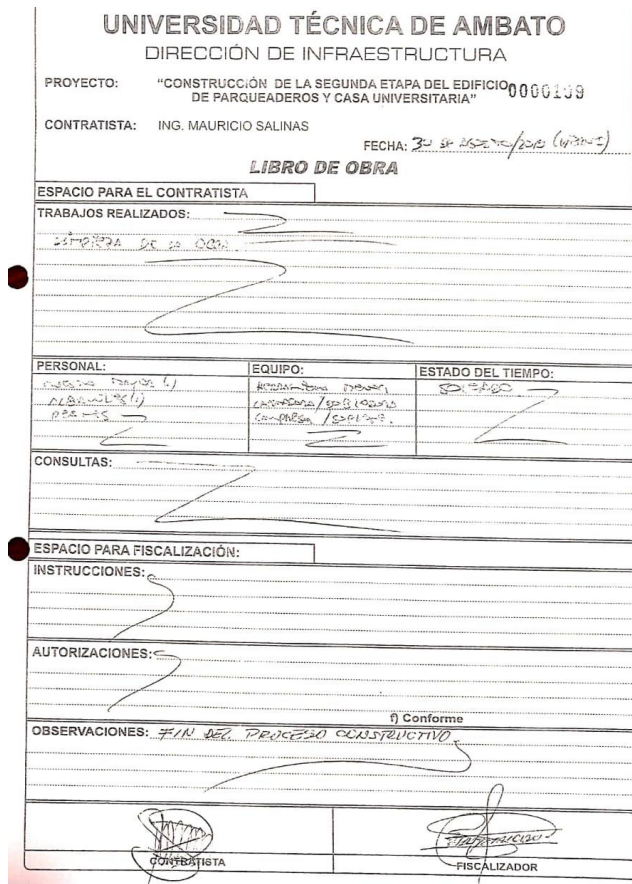 UNIVERSIDAD TÉCNICA DE AMBATO
DIRECCIÓN DE INFRAESTRUCTURA
PROYECTO: "CONSTRUCCIÓN DE LA SEGUNDA ETAPA DEL EDIFICIO
DE PARQUEADEROS Y CASA UNIVERSITARIA"
CONTRATISTA: ING. MAURICIO SALINAS
FECHA:
LIBRO DE OBRA
ESPACIO PARA EL CONTRATISTA
TRABAJOS REALIZADOS:
LIMPIEZA DE LA OBRA
PERSONAL: EQUIPO: ESTADO DEL TIEMPO:
MAESTRO MAYOR (1) HERRAMIENTA MENOR SOLEADO
ALBAÑILES (1)
PEONES
CONSULTAS:
ESPACIO PARA FISCALIZACIÓN:
INSTRUCCIONES:
AUTORIZACIONES:
f) Conforme
OBSERVACIONES: FIN DEL PROCESO CONSTRUCTIVO
CONTRATISTA FISCALIZADOR